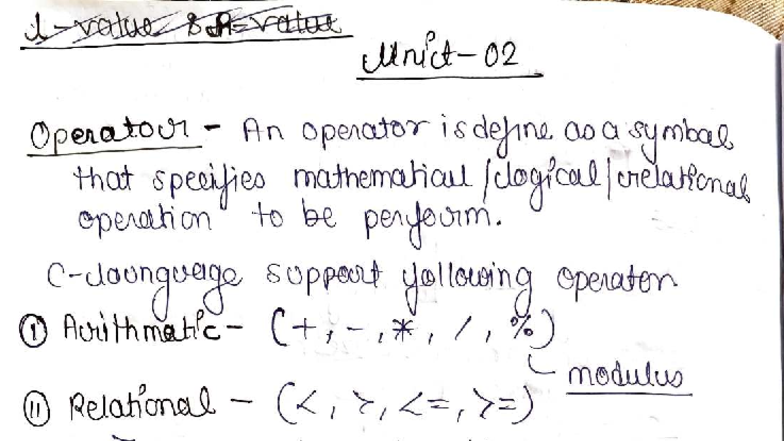 l-value & R-value
Unit-02
Operator - An operator is define as a symbol
that specifies mathematical/logical/relational
operation to be perform.
C-language support following operator
(I) Arithmatic - (+, -, *, /, %)
modulus
(II) Relational - (<, >, <=, >=)